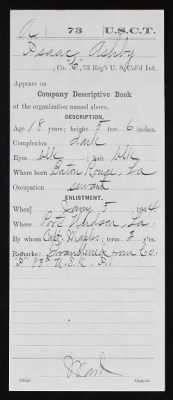 A | 73 | U.S.C.T.
Isaac Ashby
, Co. E, 73 Reg't U. S. Col'd Inf.
Appears on
Company Descriptive Book
of the organization named above.
DESCRIPTION.
Age 18 years; height 5 feet 6 inches.
Complexion dark
Eyes blk ; hair blk
Where born Baton Rouge, La
Occupation servant
ENLISTMENT.
When Jany 5 , 1864
Where Port Hudson, La.
By whom Capt. ; term 3 y'rs.
Remarks: Transferred from Co.
73d U.S.C.
Copyist.